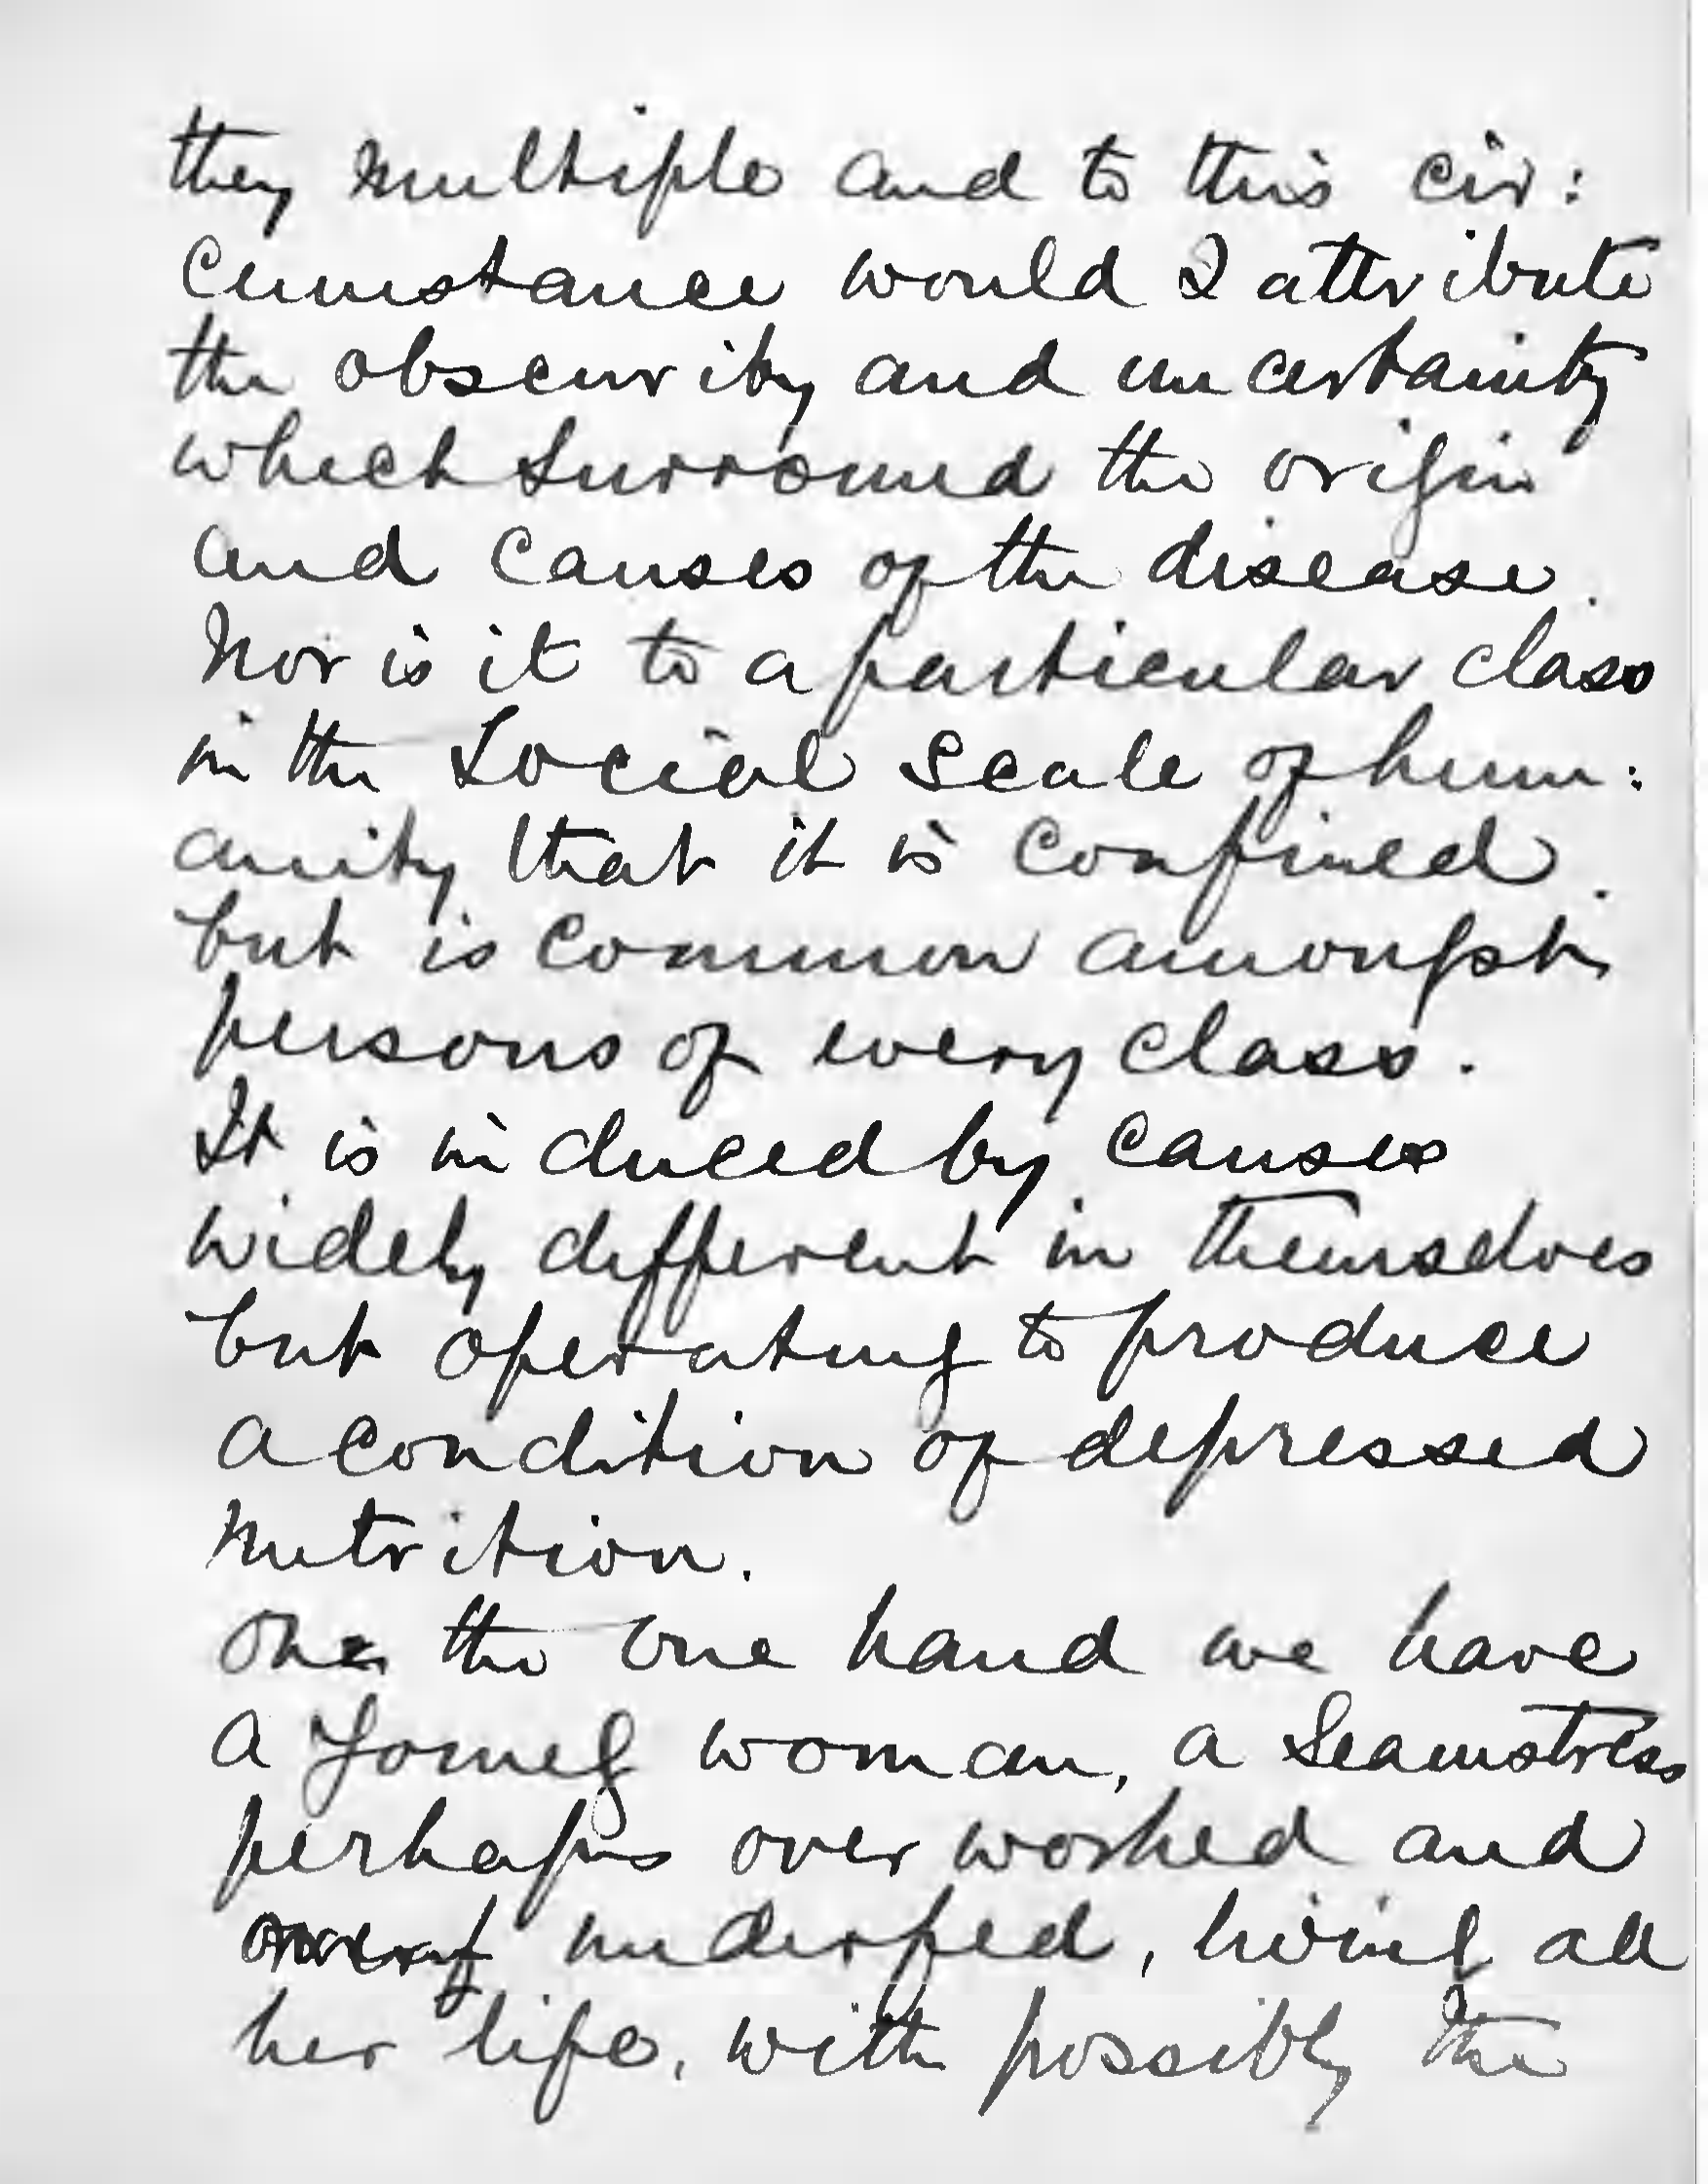 they multiple and to this cir:
cumstance would I attribute
the obscurity and uncertainty
which surround the origin
and causes of the disease.
Nor is it to a particular class
in the Social Scale of hum:
anity that it is confined.
but is common amongst
persons of every class.
It is induced by causes
widely different in themselves
but operating to produce
a condition of depressed
nutrition.
On the one hand we have
a young woman, a Seamstress
perhaps over worked and
underfed, living all
her life, with possibly the